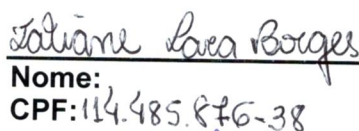 Tatiane Lara Borges
Nome:
CPF: 114.485.876-38